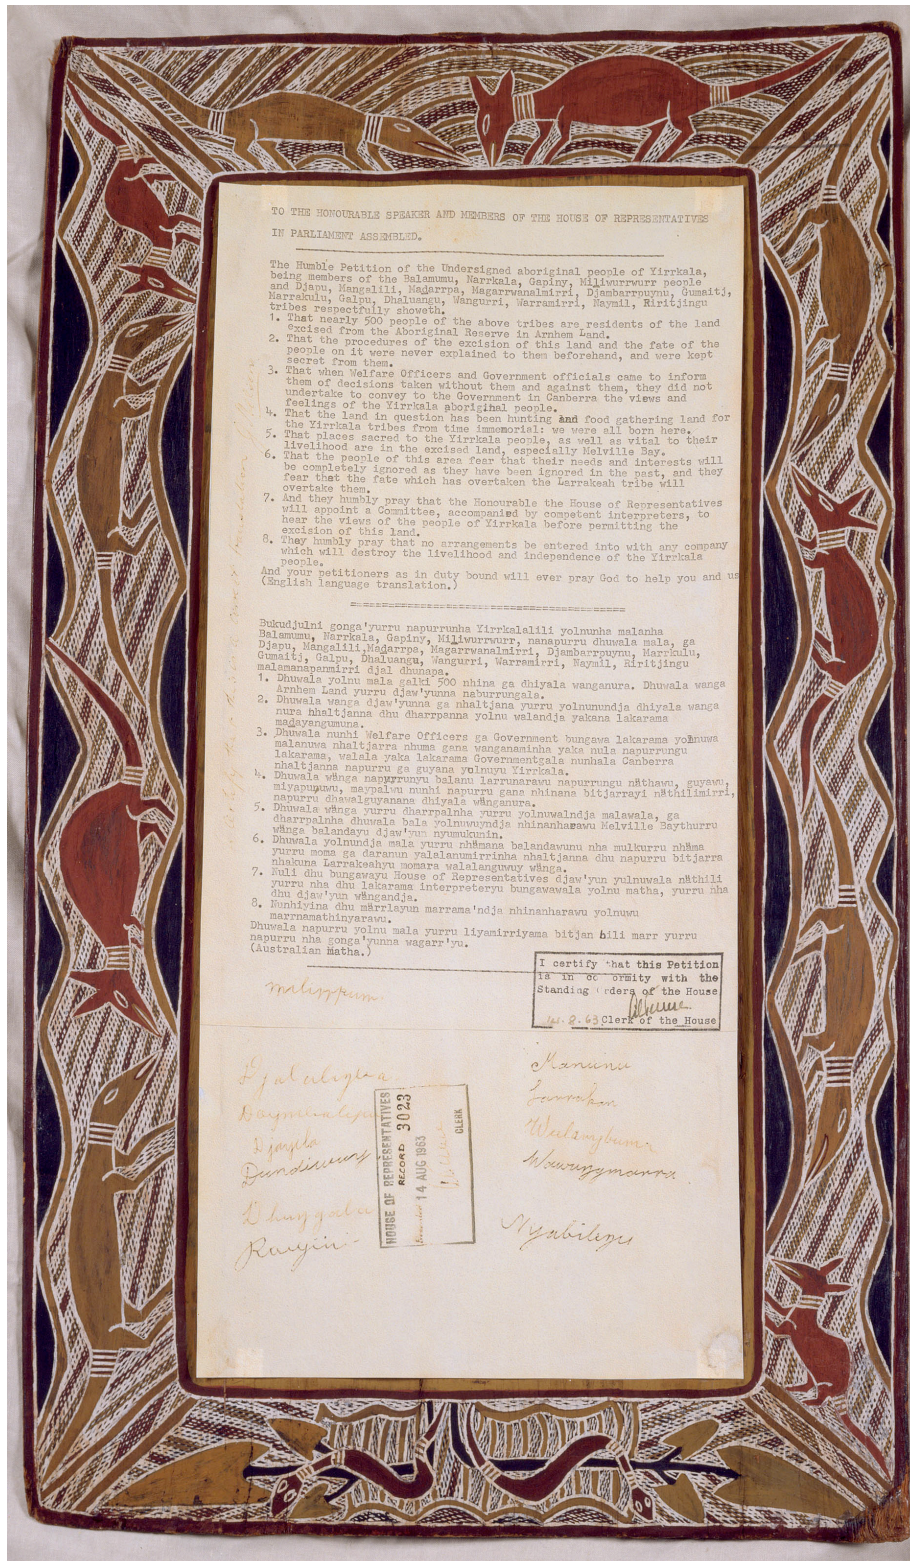 TO THE HONOURABLE SPEAKER AND MEMBERS OF THE HOUSE OF REPRESENTATIVES
IN PARLIAMENT ASSEMBLED.
The Humble Petition of the Undersigned aboriginal people of Yirrkala,
being members of the Balamumu, Narrkala, Gapiny, Miliwurrwurr people
and Djapu, Mangalili, Madarrpa, Magarrwanalmirri, Djambarrpuynu, Gumaitj,
Marrakulu, Galpu, Dhaluangu, Wangurri, Warramirri, Naymil, Riritjingu
tribes respectfully showeth.
1. That nearly 500 people of the above tribes are residents of the land
excised from the Aboriginal Reserve in Arnhem Land.
2. That the procedures of the excision of this land and the fate of the
people on it were never explained to them beforehand, and were kept
secret from them.
3. That when Welfare Officers and Government officials came to inform
them of decisions taken without them and against them, they did not
undertake to convey to the Government in Canberra the views and
feelings of the Yirrkala aboriginal people.
4. That the land in question has been hunting and food gathering land for
the Yirrkala tribes from time immemorial: we were all born here.
5. That places sacred to the Yirrkala people, as well as vital to their
livelihood are in the excised land, especially Melville Bay.
6. That the people of this area fear that their needs and interests will
be completely ignored as they have been ignored in the past, and they
fear that the fate which has overtaken the Larrakeah tribe will
overtake them.
7. And they humbly pray that the Honourable the House of Representatives
will appoint a Committee, accompanied by competent interpreters, to
hear the views of the people of Yirrkala before permitting the
excision of this land.
8. They humbly pray that no arrangements be entered into with any company
which will destroy the livelihood and independence of the Yirrkala
people.
And your petitioners as in duty bound will ever pray God to help you and us
(English language translation.)
Bukudjulni gonga'yurru napurrunha Yirrkalalili yolnunha malanha
Balamumu, Narrkala, Gapiny, Miliwurrwurr, nanapurru dhuwala mala, ga
Djapu, Mangalili, Madarrpa, Magarrwanalmirri, Djambarrpuynu, Marrkulu,
Gumaitj, Galpu, Dhaluangu, Wangurri, Warramirri, Naymil, Riritjingu
malamanapanmirri djal dhunapa.
1. Dhuwala yolnu mala galki 500 nhina ga dhiyala wanganura. Dhuwala wanga
Arnhem Land yurru djaw'yunna naburrungala.
2. Dhuwala wanga djaw'yunna ga nhaltjana yurru yolnunundja dhiyala wanga
nura nhaltjanna dhu dharrpanna yolnu walandja yakana lakarama
madayangumuna.
3. Dhuwala nunhi Welfare Officers ga Government bungawa lakarama yolnuwa
malanuwa nhaltjarra nhuma gana wanganaminha yaka nula napurrungu
lakarama, walala yaka lakarama Governmentgala nunhala Canberra
nhaltjanna napurru ga guyana yolnuyu Yirrkala.
4. Dhuwala wänga napurrunyu balanu larrunarawu napurrungu näthawu, guyawu,
miyapunuwu, maypalwu nunhi napurru gana nhinana bitjarrayi näthilimirri,
napurru dhawalguyanana dhiyala wänganura.
5. Dhuwala wänga yurru dharrpalnha yurru yolnuwalndja malawala, ga
dharrpalnha dhuwala bala yolnuwuyndja nhinanharawu Melville Baythurru
wänga balandayu djaw'yun nyumukunin.
6. Dhuwala yolnundja mala yurru nhämana balandawunu nha mulkurru nhäma
yurru moma ga daranun yalalanumirrinha nhaltjanna dhu napurru bitjarra
nhakuna Larrakeahyu momara walalanguwuy wänga.
7. Nuli dhu bungawayu House of Representatives djaw'yun yulnuwala näthili
yurru nha dhu lakarama interpreteryu bungawawala yolnu matha, yurru nha
dhu djaw'yun wängandja.
8. Nunhiyina dhu märrlayun marrama'ndja nhinanharawu yolnuwu
marrnamathinyarawu.
Dhuwala napurru yolnu mala yurru liyamirriyama bitjan bili marr yurru
napurru nha gonga'yunna wagarr'yu.
(Australian Matha.)
I certify that this Petition
is in co ormity with the
Standing rders of the House
14.8.63 Clerk of the House
Milirrpum
Djalalingba
Daymbalipu
Djayila
Dundiwuy
Dhuygala
Raiyin
Manunu
Larrakan
Wulanybuma
Wawunymarra
Nyabilingu
HOUSE OF REPRESENTATIVES
RECORD 3023
14 AUG 1963
CLERK